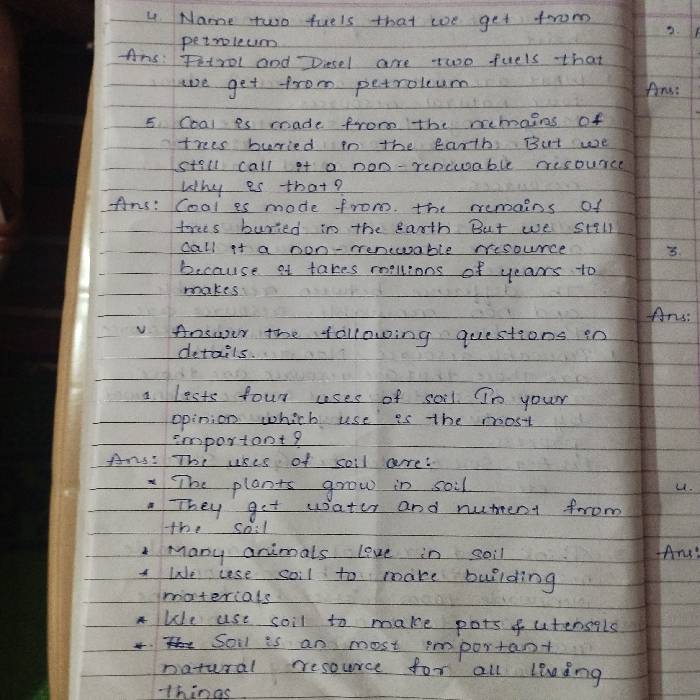 4. Name two fuels that we get from
petroleum
Ans: Petrol and Diesel are two fuels that
we get from petroleum
5. Coal is made from the remains of
trees buried in the Earth But we
still call it a non-renewable resource
Why is that?
Ans: Coal is made from. the remains of
trees buried in the Earth But we still
call it a non-renewable resource
because it takes millions of years to
makes
V Answer the following questions in
details.
1. Lists four uses of soil In your
opinion which use is the most
important?
Ans: The uses of soil are:
* The plants grow in soil
* They get water and nutrient from
the soil
* Many animals live in soil
* We use soil to make building
materials
* We use soil to make pots & utensils
* The Soil is an most important
natural resource for all living
things
2.
Ans:
3.
Ans:
4.
Ans: